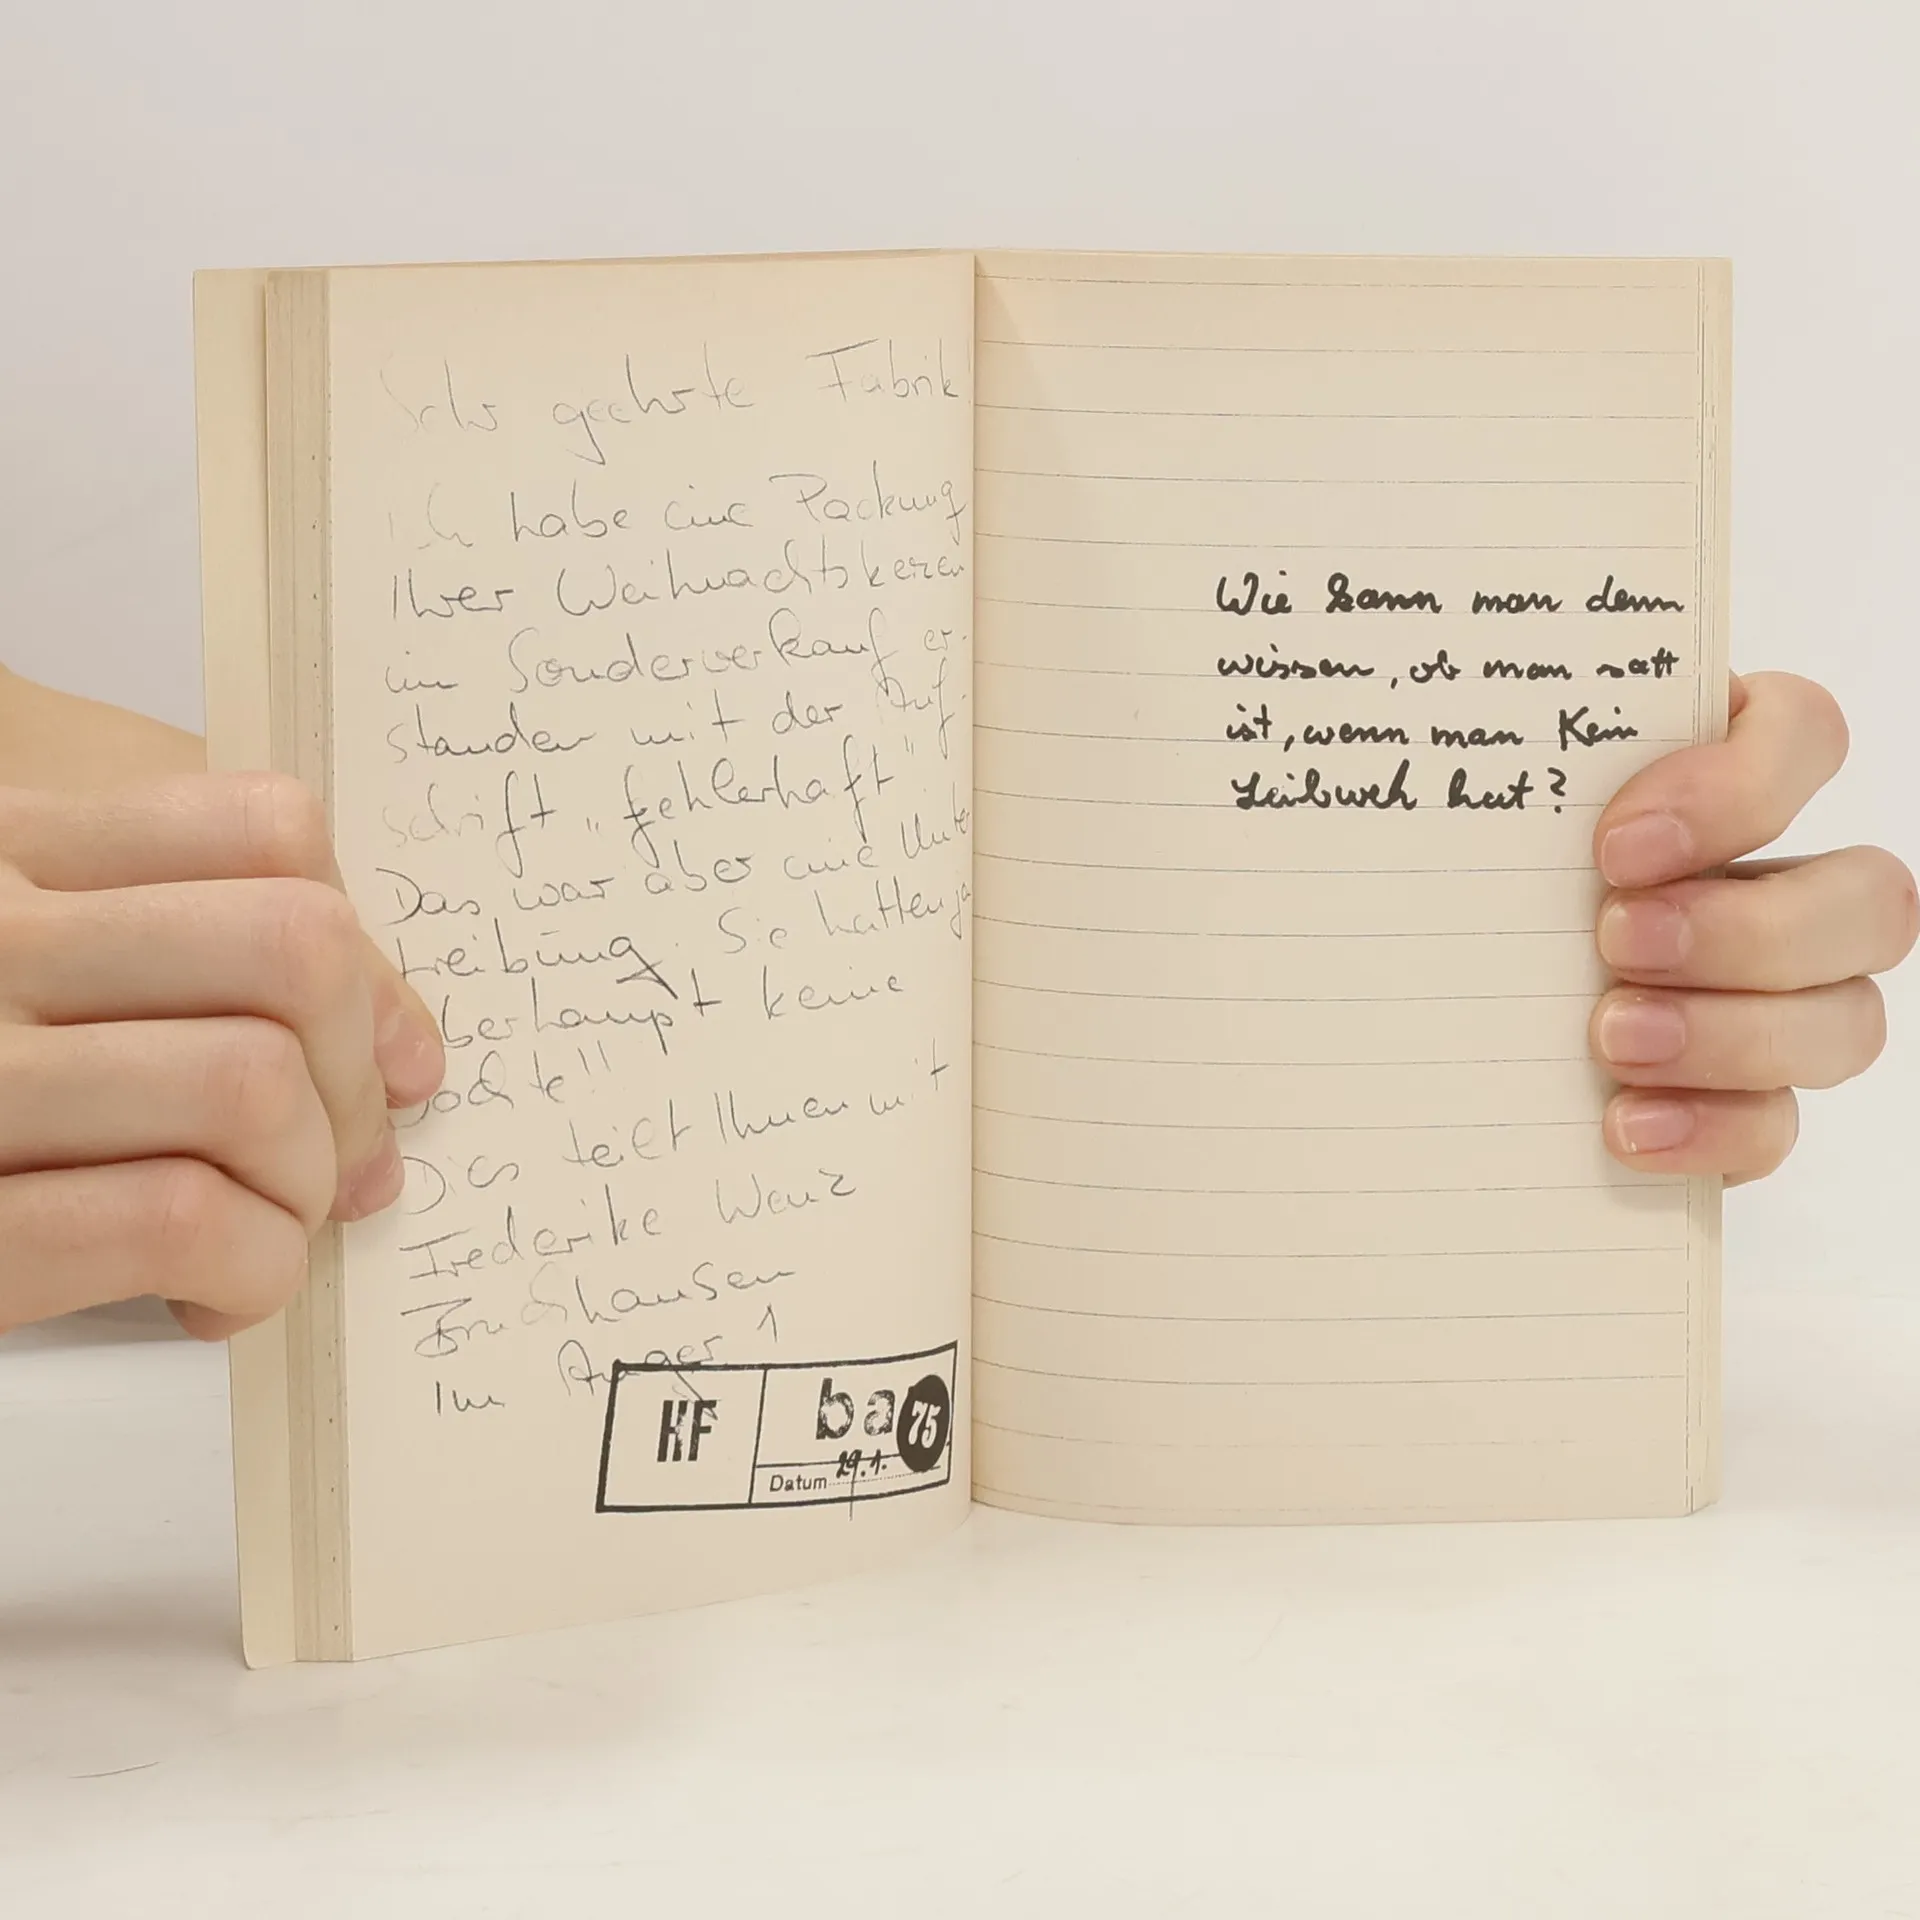 Sehr geehrte Fabrik!
Ich habe eine Packung
Ihrer Weihnachtskerzen
im Sonderverkauf er-
standen mit der Auf-
schrift "fehlerhaft"
Das war aber eine Unter
treibung. Sie hatten ja
überhaupt keine
Dochte!!
Dies teilt Ihnen mit
Frederike Wenz
Im Anger 1
HF
ba 75
Datum 29.1.
Wie kann man denn
wissen, ob man satt
ist, wenn man Kein
Leibweh hat?